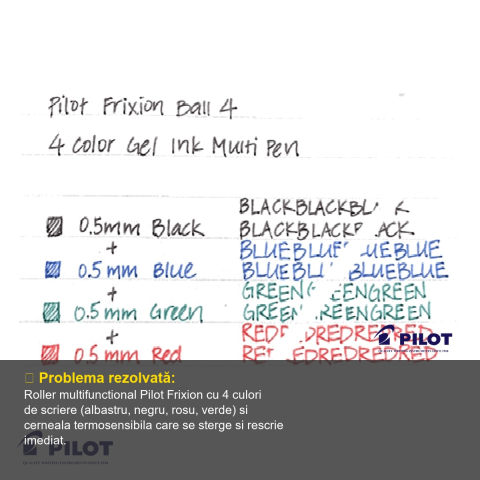 Pilot Frixion Ball 4
4 Color Gel Ink Multi Pen
BLACKBLACKBL K
0.5mm Black BLACKBLACK ACK
+ BLUEBLUE UEBLUE
0.5mm Blue BLUEBLU BLUEBLUE
+ GREENG EENGREEN
0.5mm Green GREEN REENGREEN
+ RED DREDREDRED
0.5mm Red RE REDREDRED
PILOT
Problema rezolvată:
Roller multifunctional Pilot Frixion cu 4 culori
de scriere (albastru, negru, rosu, verde) si
cerneala termosensibila care se sterge si rescrie
imediat.
PILOT